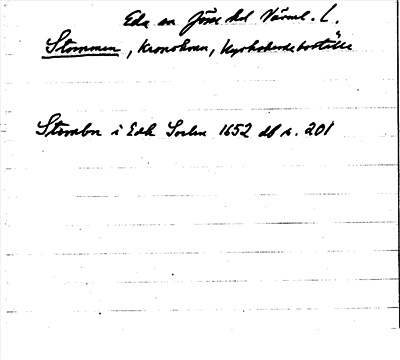 Eda sn Jösse hd Värml. L.
Stommen, Kronohemn, Kyrkoherdeboställe
Stombn i Edh Sochn 1652 db s. 201